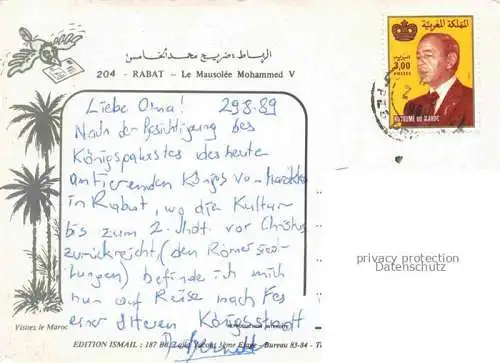 الرباط ، ضريح محمد الخامس
204 - RABAT - Le Mausolée Mohammed V
المملكة المغربية
3,00
POSTES
ROYAUME DU MAROC
Liebe Oma! 29.8.89
Nach der Besichtigung des
Königspalastes des heute
amtierenden Königs von Marokko
in Rabat, wo die Kultur
bis zum 2. Jhdt. vor Christus
zurückreicht (den Römersied-
lungen) befinde ich mich
nun auf Reise nach Fes
einer älteren Königsstadt
privacy protection
Datenschutz
Visitez le Maroc
EDITION ISMAIL : 187 Bd. 3ème Etage - Bureau 83-84 - T